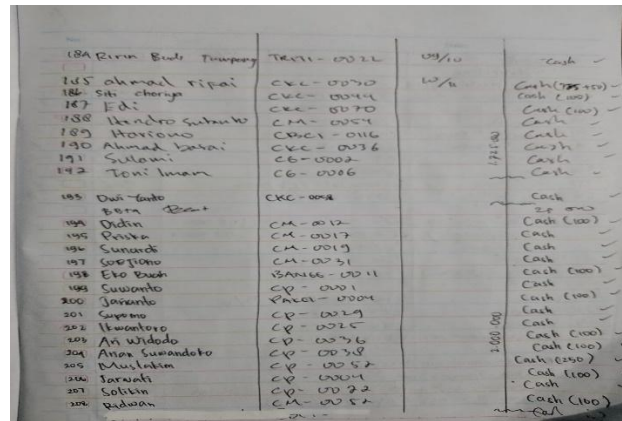 184 Ririn Budi Tumpang TRITI-0022 09/10 Cash
185 ahmad ripai CKC-0030 10/11 Cash (775+50)
186 Siti choriya CKC-0044 Cash (100)
187 Edi CKC-0070 Cash (100)
188 Hendro Sutanto CM-0054 Cash
189 Hariono CBCC1-0116 Cash
190 Ahmad basai CKC-0036 Cash
191 Sulami C6-0002 Cash
192 Toni Imam C6-0006 Cash
193 Dwi Yanto CKC-0058 Cash
194 Didin CM-0012 Cash (100)
195 Priska CM-0017 Cash
196 Sunardi CM-0019 Cash
197 Soegiono CM-0031 Cash
198 Eko Buah BANGG-0011 Cash (100)
199 Suwanto CP-0001 Cash
200 Jananto PAKCI-0004 Cash (100)
201 Supomo CP-0029 Cash
202 Ikwantoro CP-0025 Cash
203 Ari Widodo CP-0036 Cash (100)
204 Anan Suwandoko CP-0038 Cash (100)
205 Muslakim CP-0052 Cash (250)
206 Jarwati CP-0004 Cash (100)
207 Solikin CP-0022 Cash
208 Ridwan CM-0052 Cash (100)
1.725.00
2.000.000